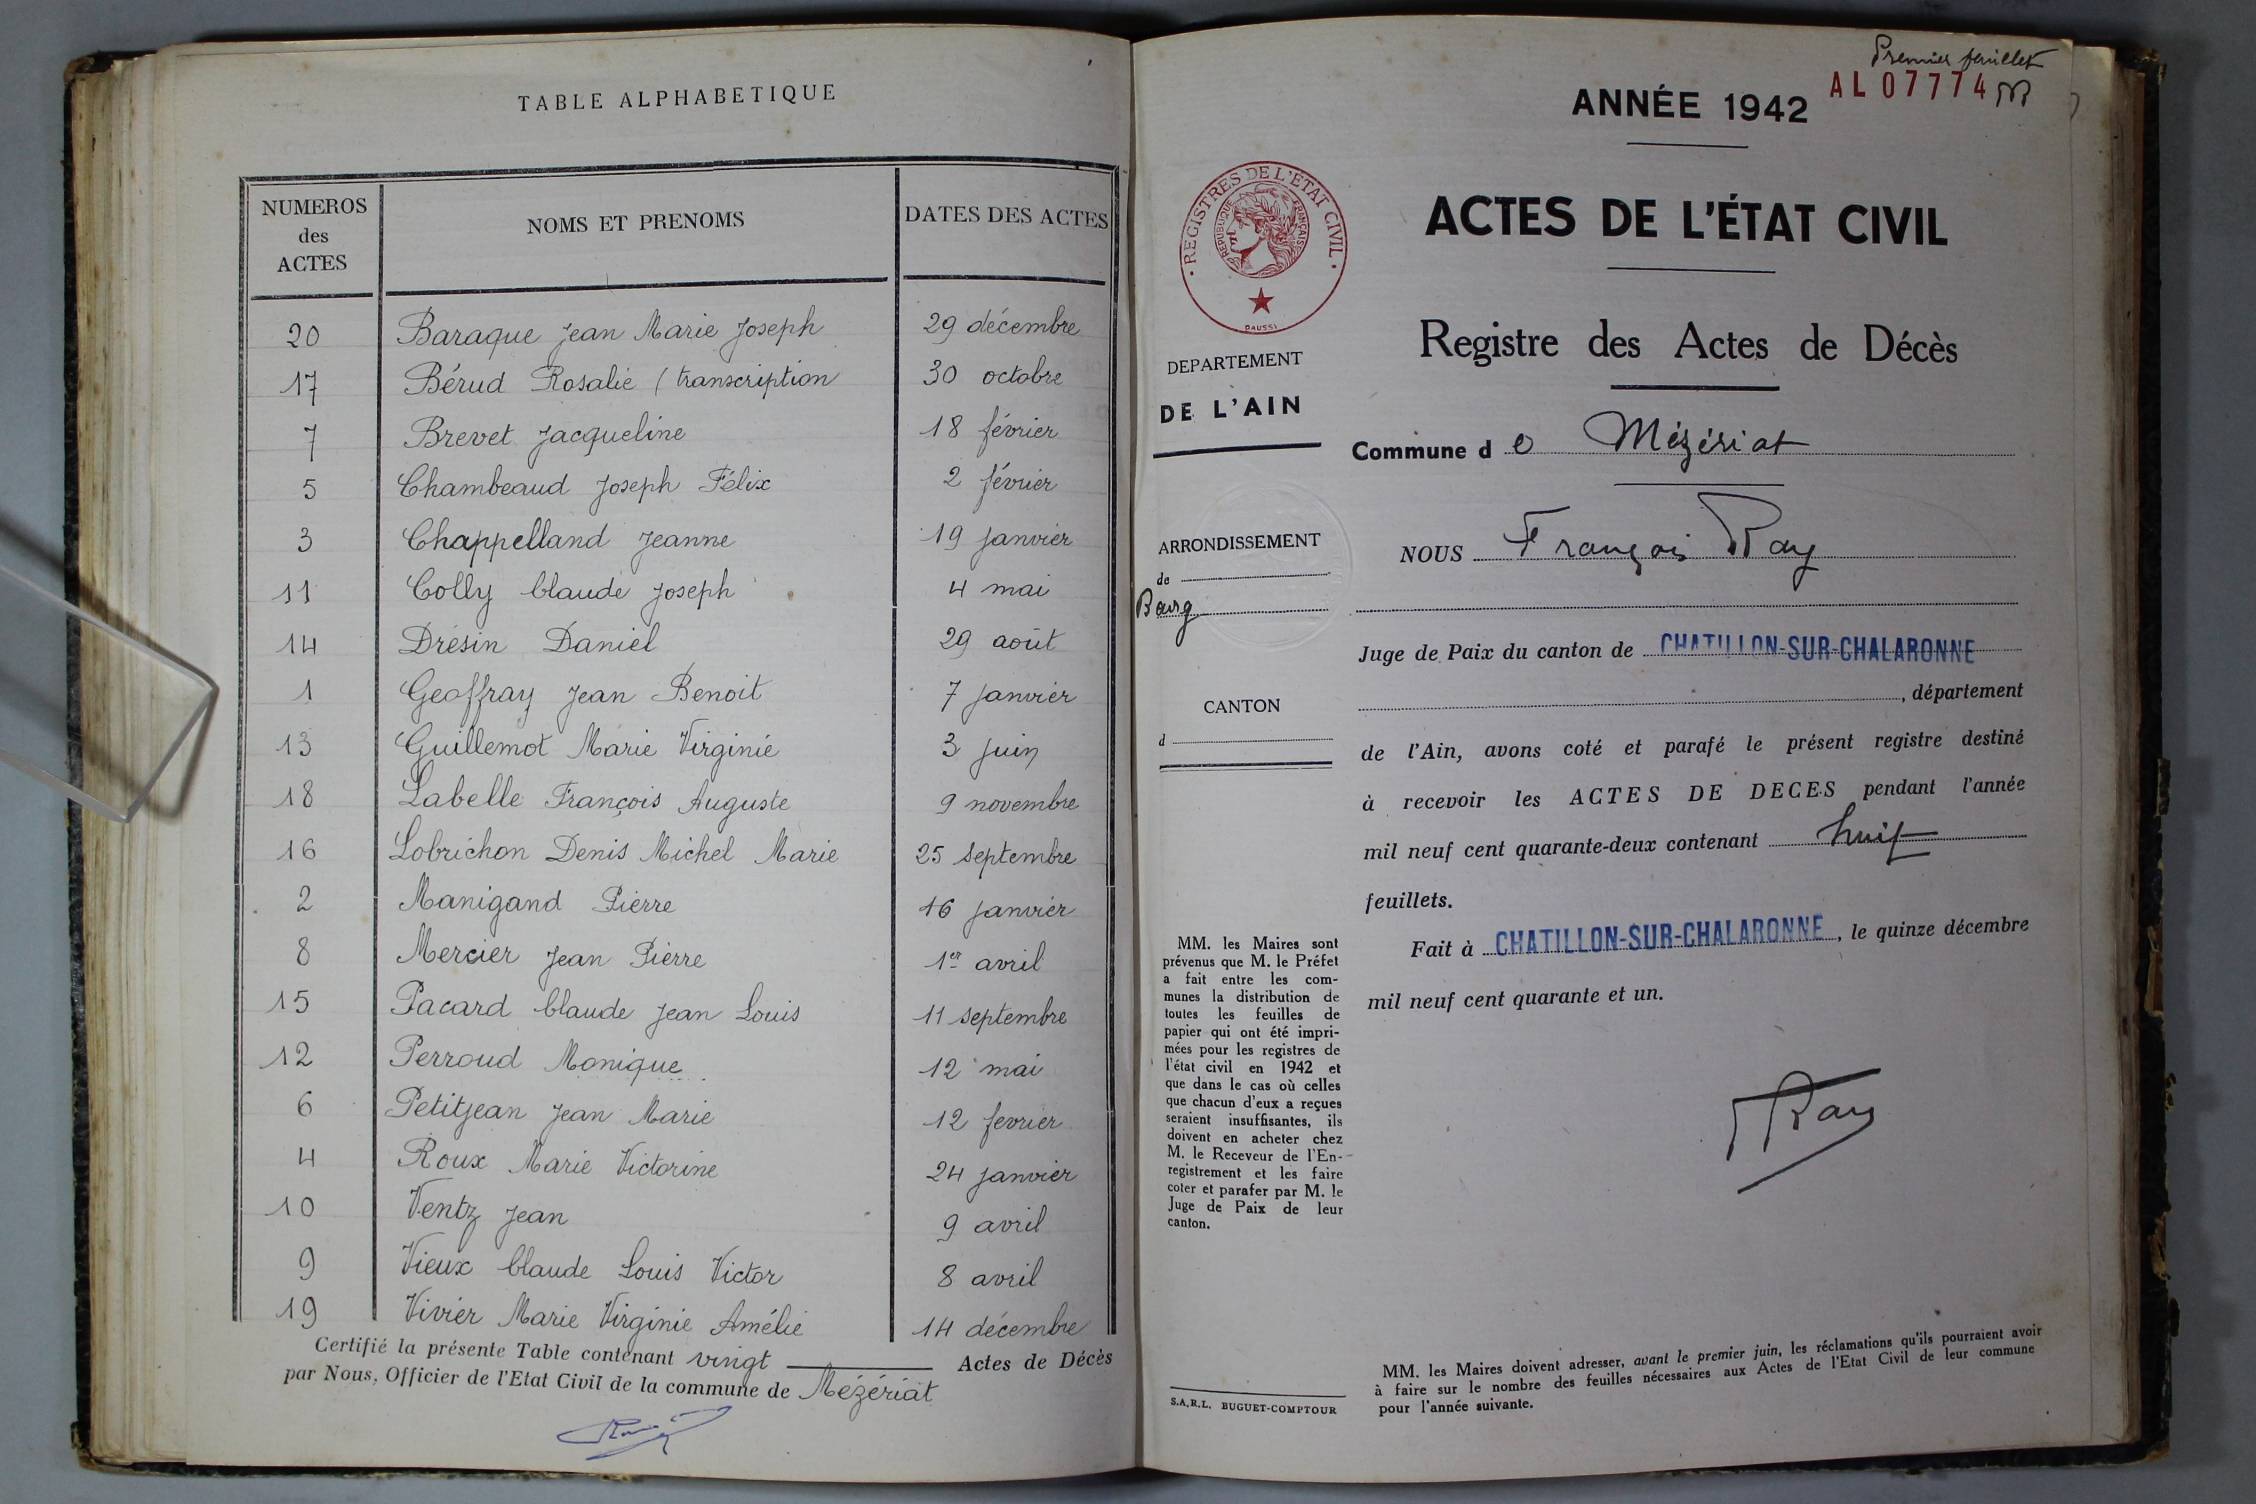 TABLE ALPHABETIQUE
NUMEROS
des
ACTES
NOMS ET PRENOMS
DATES DES ACTES
20 Baraque Jean Marie Joseph 29 décembre
17 Bérud Rosalie (transcription 30 octobre
7 Brevet Jacqueline 18 février
5 Chambeaud Joseph Félix 2 février
3 Chappelland Jeanne 19 janvier
11 Colly Claude Joseph 4 mai
14 Drésin Daniel 29 août
1 Geoffray Jean Benoit 7 janvier
13 Guillemot Marie Virginie 3 juin
18 Labelle François Auguste 9 novembre
16 Lobrichon Denis Michel Marie 25 septembre
2 Manigand Pierre 16 janvier
8 Mercier Jean Pierre 1er avril
15 Pacard Claude Jean Louis 11 septembre
12 Perroud Monique 12 mai
6 Petitjean Jean Marie 12 fevrier
4 Roux Marie Victorine 24 janvier
10 Ventz Jean 9 avril
9 Vieux Claude Louis Victor 8 avril
19 Vivier Marie Virginie Amélie 14 décembre
Certifié la présente Table contenant vingt Actes de Décès
par Nous, Officier de l'Etat Civil de la commune de Mézériat
Premier feuillet
AL 07774
ANNÉE 1942
ACTES DE L'ÉTAT CIVIL
REGISTRES DE L'ETAT CIVIL
REPUBLIQUE FRANÇAISE
DAUSSI
Registre des Actes de Décès
DEPARTEMENT
DE L'AIN
Commune de Mézériat
ARRONDISSEMENT
de
Bourg
NOUS François Ray
Juge de Paix du canton de CHATILLON-SUR-CHALARONNE
, département
CANTON
d
de l'Ain, avons coté et parafé le présent registre destiné
à recevoir les ACTES DE DECES pendant l'année
mil neuf cent quarante-deux contenant huit
feuillets.
Fait à CHATILLON-SUR-CHALARONNE, le quinze décembre
mil neuf cent quarante et un.
Ray
MM. les Maires sont
prévenus que M. le Préfet
a fait entre les com-
munes la distribution de
toutes les feuilles de
papier qui ont été impri-
mées pour les registres de
l'état civil en 1942 et
que dans le cas où celles
que chacun d'eux a reçues
seraient insuffisantes, ils
doivent en acheter chez
M. le Receveur de l'En-
registrement et les faire
coter et parafer par M. le
Juge de Paix de leur
canton.
S.A.R.L. BUGUET-COMPTOUR
MM. les Maires doivent adresser, avant le premier juin, les réclamations qu'ils pourraient avoir
à faire sur le nombre des feuilles nécessaires aux Actes de l'Etat Civil de leur commune
pour l'année suivante.